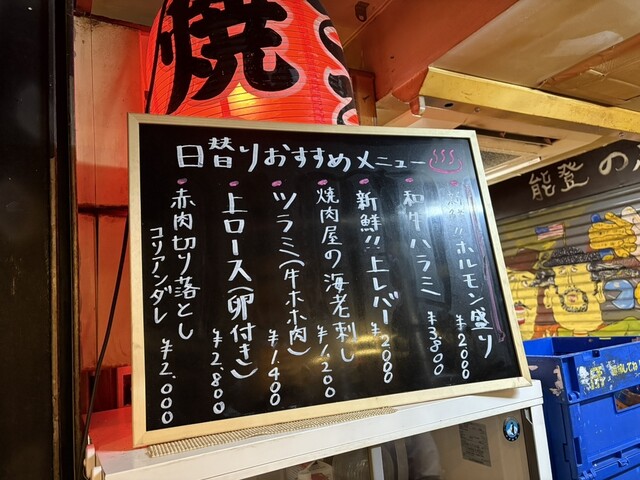 焼
日替りおすすめメニュー
!!ホルモン盛り ¥2000
和牛ハラミ ¥3,800
新鮮!!上レバー ¥2000
焼肉屋の海老刺し ¥1,200
ツラミ(牛ホホ肉) ¥1,400
上ロース(卵付き) ¥2,800
赤肉切り落とし
コリアンダレ ¥2,000
能登の